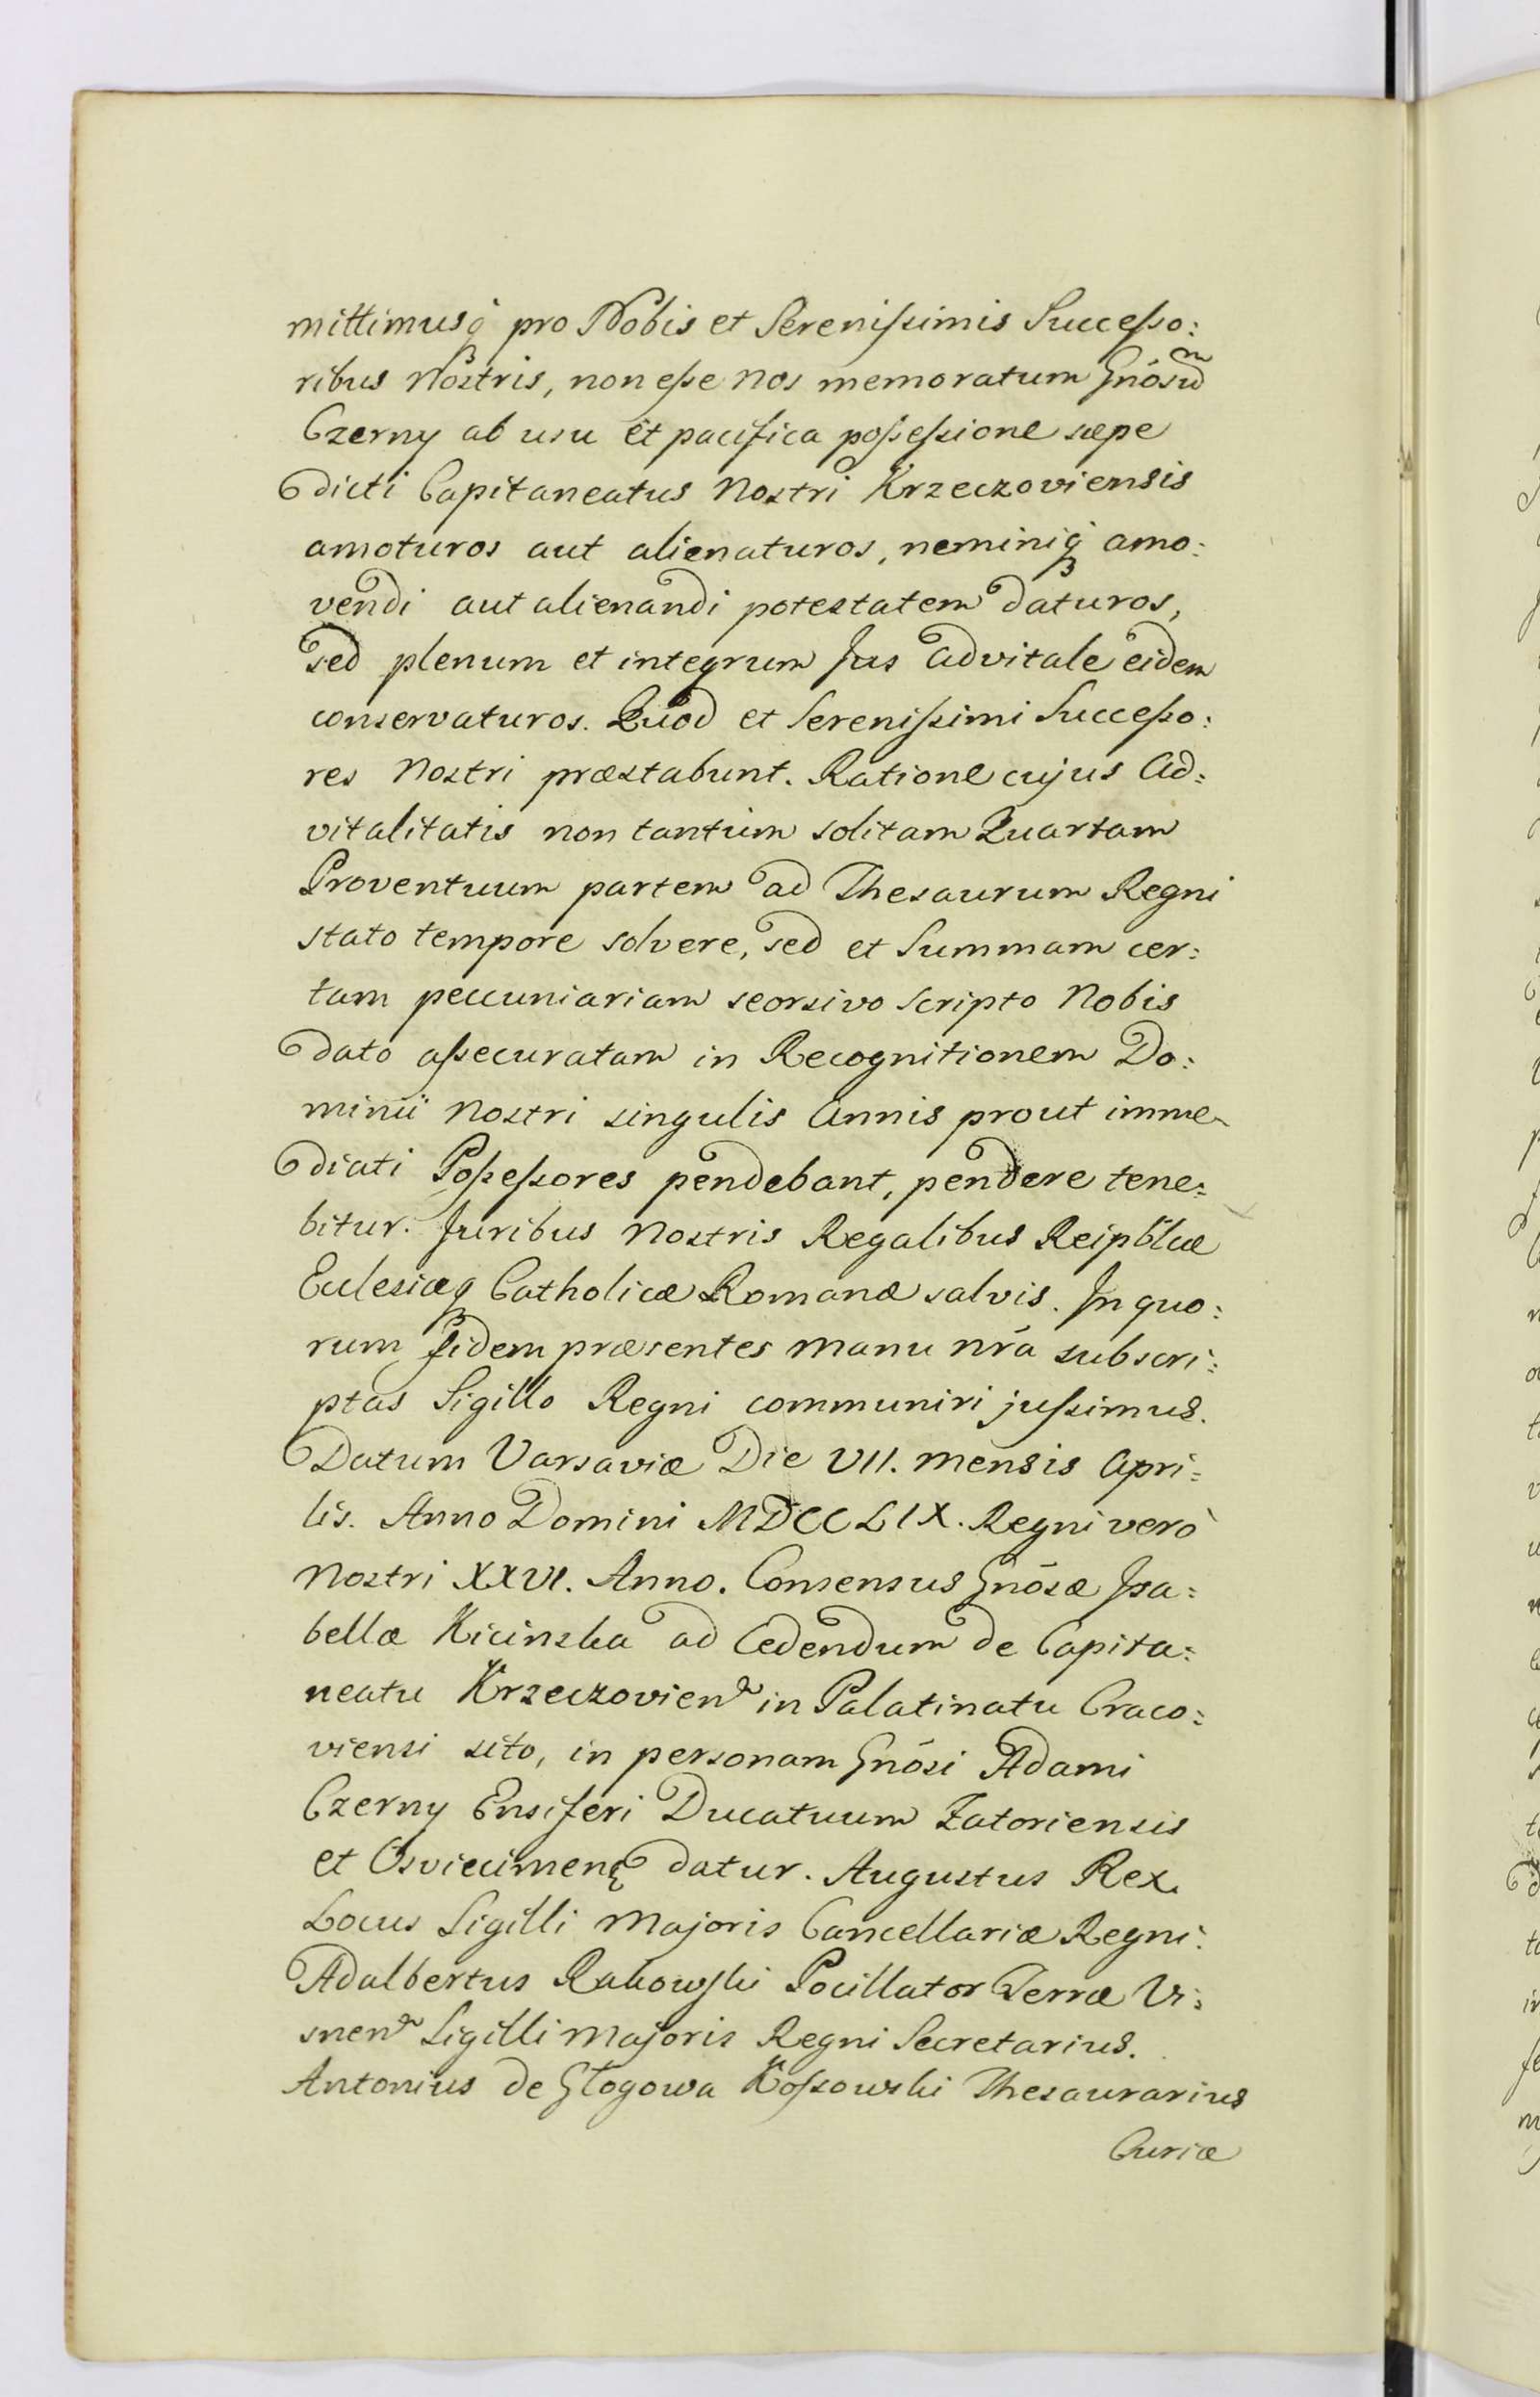 mittimusq̃ pro Nobis et Serenißimis Succeßo:
ribus Nostris, non eße Nos memoratum Gnõsum
Czerny ab usu et pacifica poßeßione sæpe
dicti Capitaneatus Nostri Krzeczoviensis
amoturos aut alienaturos, neminiq̃ amo:
vendi aut alienandi potestatem daturos,
sed plenum et integrum Jus advitale eidem
conservaturos. Quod et Serenißimi Succeßo:
res Nostri præstabunt. Ratione cujus Ad:
vitalitatis non tantum solitam Quartam
Proventuum partem ad Thesaurum Regni
stato tempore solvere, sed et Summam cer:
tam peccuniariam seorsivo Scripto Nobis
dato aßecuratam in Recognitionem Do:
minii Nostri singulis Annis prout imme-
diati Poßeßores pendebant, pendere tene:
bitur. Juribus Nostris Regalibus Reipblcæ
Ecclesiæq Catholicæ Romanæ salvis. In quo:
rum fidem præsentes Manu nrã subscri:
ptas Sigillo Regni communiri jußimus.
Datum Varsaviæ Die VII. Mensis Apri:
lis. Anno Domini MDCCLIX. Regni verò
Nostri XXVI. Anno. Consensus Gnõsæ Isa:
bellæ Kicinska ad Cedendum de Capita:
neatu Krzeczovien in Palatinatu Craco:
viensi sito, in personam Gnõsi Adami
Czerny Ensiferi Ducatuum Zatoriensis
et Osviecimen datur. Augustus Rex.
Locus Sigilli Majoris Cancellariæ Regni.
Adalbertus Rakowski Pocillator Terræ Vi:
snen Sigilli Majoris Regni Secretarius.
Antonius de Głogowa Koßowski Thesaurarius
Curiæ